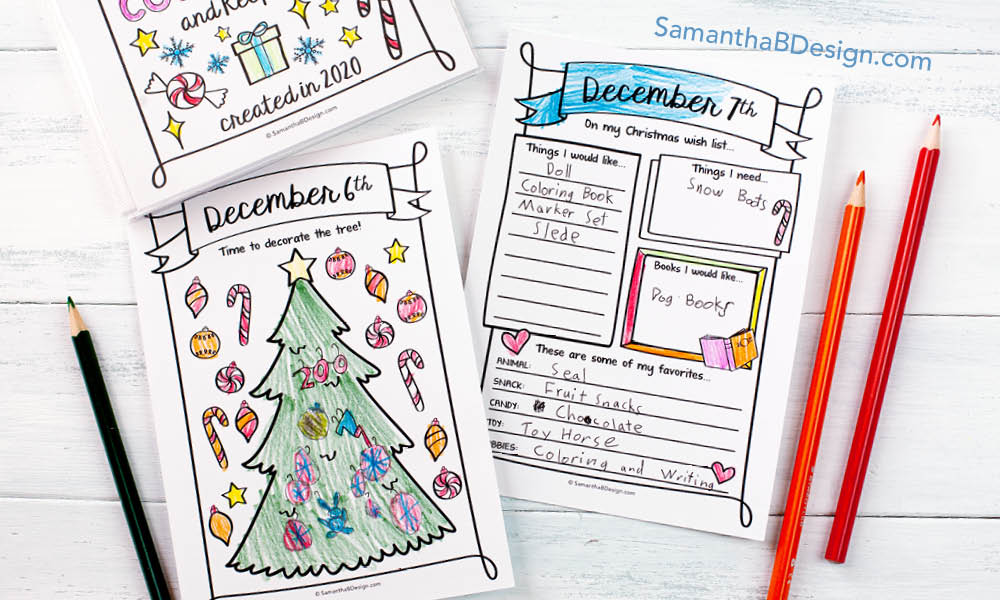 and Keep
created in 2020
© SamanthaBDesign.com
SamanthaBDesign.com
December 6th
Time to decorate the tree!
© SamanthaBDesign.com
December 7th
On my Christmas wish list...
Things I would like...
Doll
Coloring Book
Marker Set
Slede
Things I need...
Snow Boots
Books I would like...
Dog Books
These are some of my favorites...
ANIMAL: Seal
SNACK: Fruit Snacks
CANDY: Chocolate
TOY: Toy Horse
BBIES: Coloring and Writing
© SamanthaBDesign.com